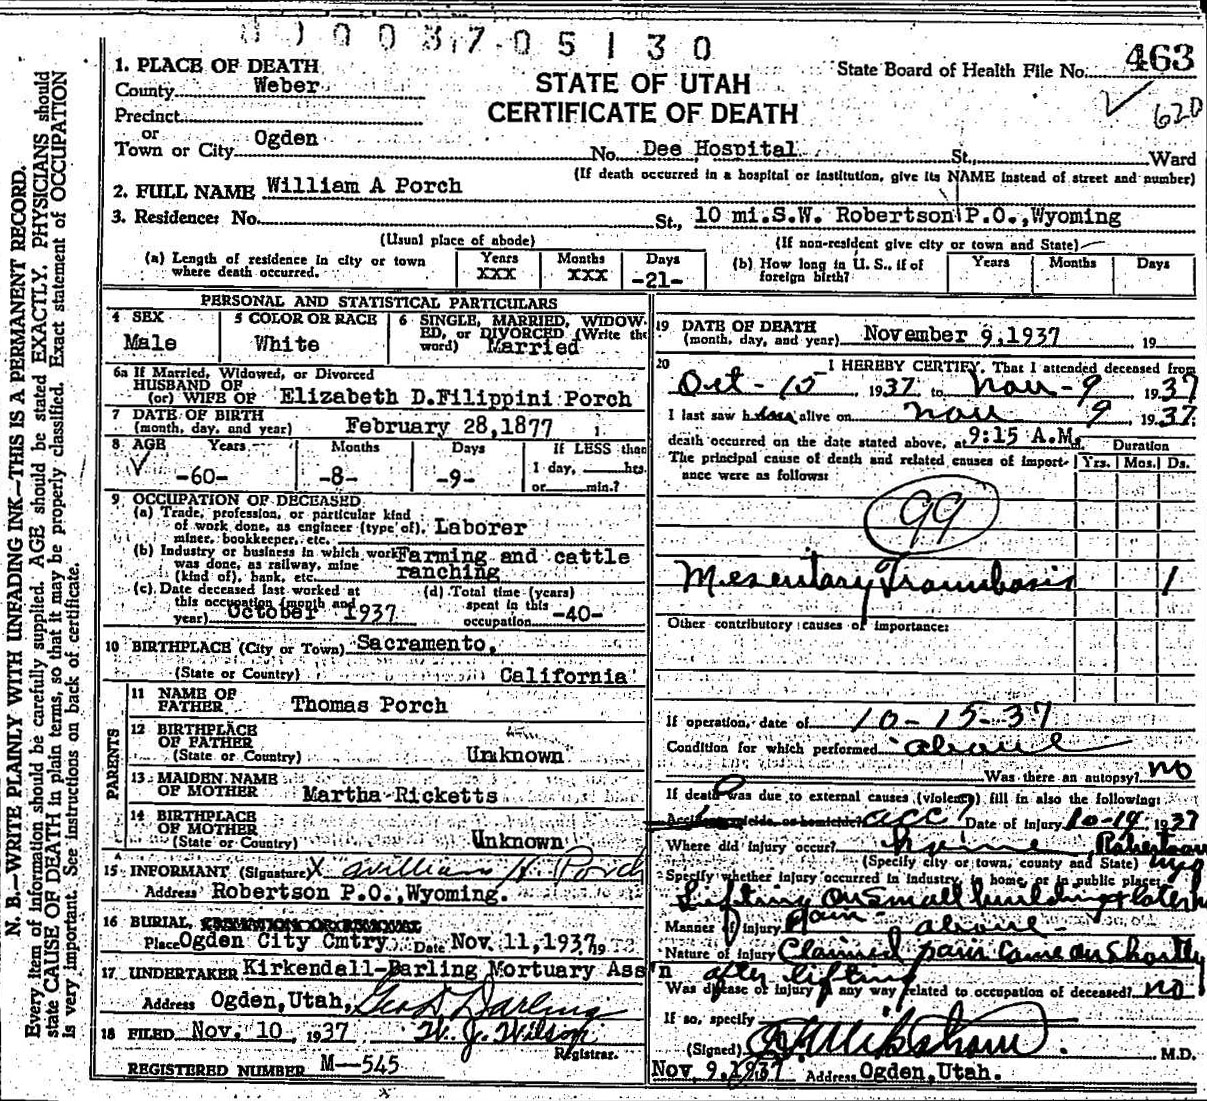 0 0 0 3 7 0 5 1 3 0
463
620
State Board of Health File No.
STATE OF UTAH
CERTIFICATE OF DEATH
1. PLACE OF DEATH
County Weber
Precinct
or
Town or City Ogden No. Dee Hospital St., Ward
(If death occurred in a hospital or institution, give its NAME instead of street and number)
2. FULL NAME William A Porch
3. Residence: No. St., 10 mi.S.W. Robertson P.O.,Wyoming
(Usual place of abode) (If non-resident give city or town and State)
(a) Length of residence in city or town where death occurred. Years XXX Months XXX Days -21-
(b) How long in U. S., if of foreign birth? Years Months Days
PERSONAL AND STATISTICAL PARTICULARS
4 SEX Male
5 COLOR OR RACE White
6 SINGLE, MARRIED, WIDOW-
RD, or DIVORCED (Write the
word) Married
6a If Married, Widowed, or Divorced
HUSBAND OF
(or) WIFE OF Elizabeth D.Filippini Porch
7 DATE OF BIRTH
(month, day, and year) February 28,1877
8 AGE Years Months Days If LESS than
-60- -8- -9- 1 day, hrs.
or min.?
9 OCCUPATION OF DECEASED
(a) Trade, profession, or particular kind
of work done, as engineer (type of), Laborer
miner, bookkeeper, etc.
(b) Industry or business in which work Farming and cattle
was done, as railway, mine
(kind of), bank, etc. ranching
(c) Date deceased last worked at
this occupation (month and
year) October 1937
(d) Total time (years)
spent in this
occupation -40-
10 BIRTHPLACE (City or Town) Sacramento,
(State or Country) California
PARENTS
11 NAME OF
FATHER Thomas Porch
12 BIRTHPLACE
OF FATHER
(State or Country) Unknown
13 MAIDEN NAME
OF MOTHER Martha Ricketts
14 BIRTHPLACE
OF MOTHER
(State or Country) Unknown
15 INFORMANT (Signature) X William H. Porch
Address Robertson P.O.,Wyoming.
16 BURIAL,
Place Ogden City Cmtry Date Nov.11,1937,19
17 UNDERTAKER Kirkendall-Darling Mortuary Ass'n
Address Ogden,Utah, Geo D Darling
18 FILED Nov. 10, 1937 W. J. Wilson
Registrar.
REGISTERED NUMBER M-545
19 DATE OF DEATH
(month, day, and year) November 9,1937 , 19
20 I HEREBY CERTIFY, That I attended deceased from
Oct-15 1937 to Nov-9 1937
I last saw him alive on Nov 9 1937.
death occurred on the date stated above, at 9:15 A.M. Duration
The principal cause of death and related causes of import-
ance were as follows: Yrs. Mos. Ds.
99
Mesentary Trombosis 1
Other contributory causes of importance:
If operation, date of 10-15-37
Condition for which performed above
Was there an autopsy? no
If death was due to external causes (violence) fill in also the following:
Accident, suicide, or homicide? acc? Date of injury 10-14 1937
Where did injury occur? home, Robertson
(Specify city or town, county and State) Wyo
Specify whether injury occurred in industry, in home, or in public place:
Lifting on small building & later
pain
Manner of injury above
Nature of injury Claimed pain came on shortly
after lifting
Was disease or injury in any way related to occupation of deceased? no
If so, specify
(Signed) M.D.
Nov. 9,1937 Address Ogden,Utah.
N. B.—WRITE PLAINLY WITH UNFADING INK—THIS IS A PERMANENT RECORD.
Every item of information should be carefully supplied. AGE should be stated EXACTLY. PHYSICIANS should
state CAUSE OF DEATH in plain terms, so that it may be properly classified. Exact statement of OCCUPATION
is very important. See instructions on back of certificate.